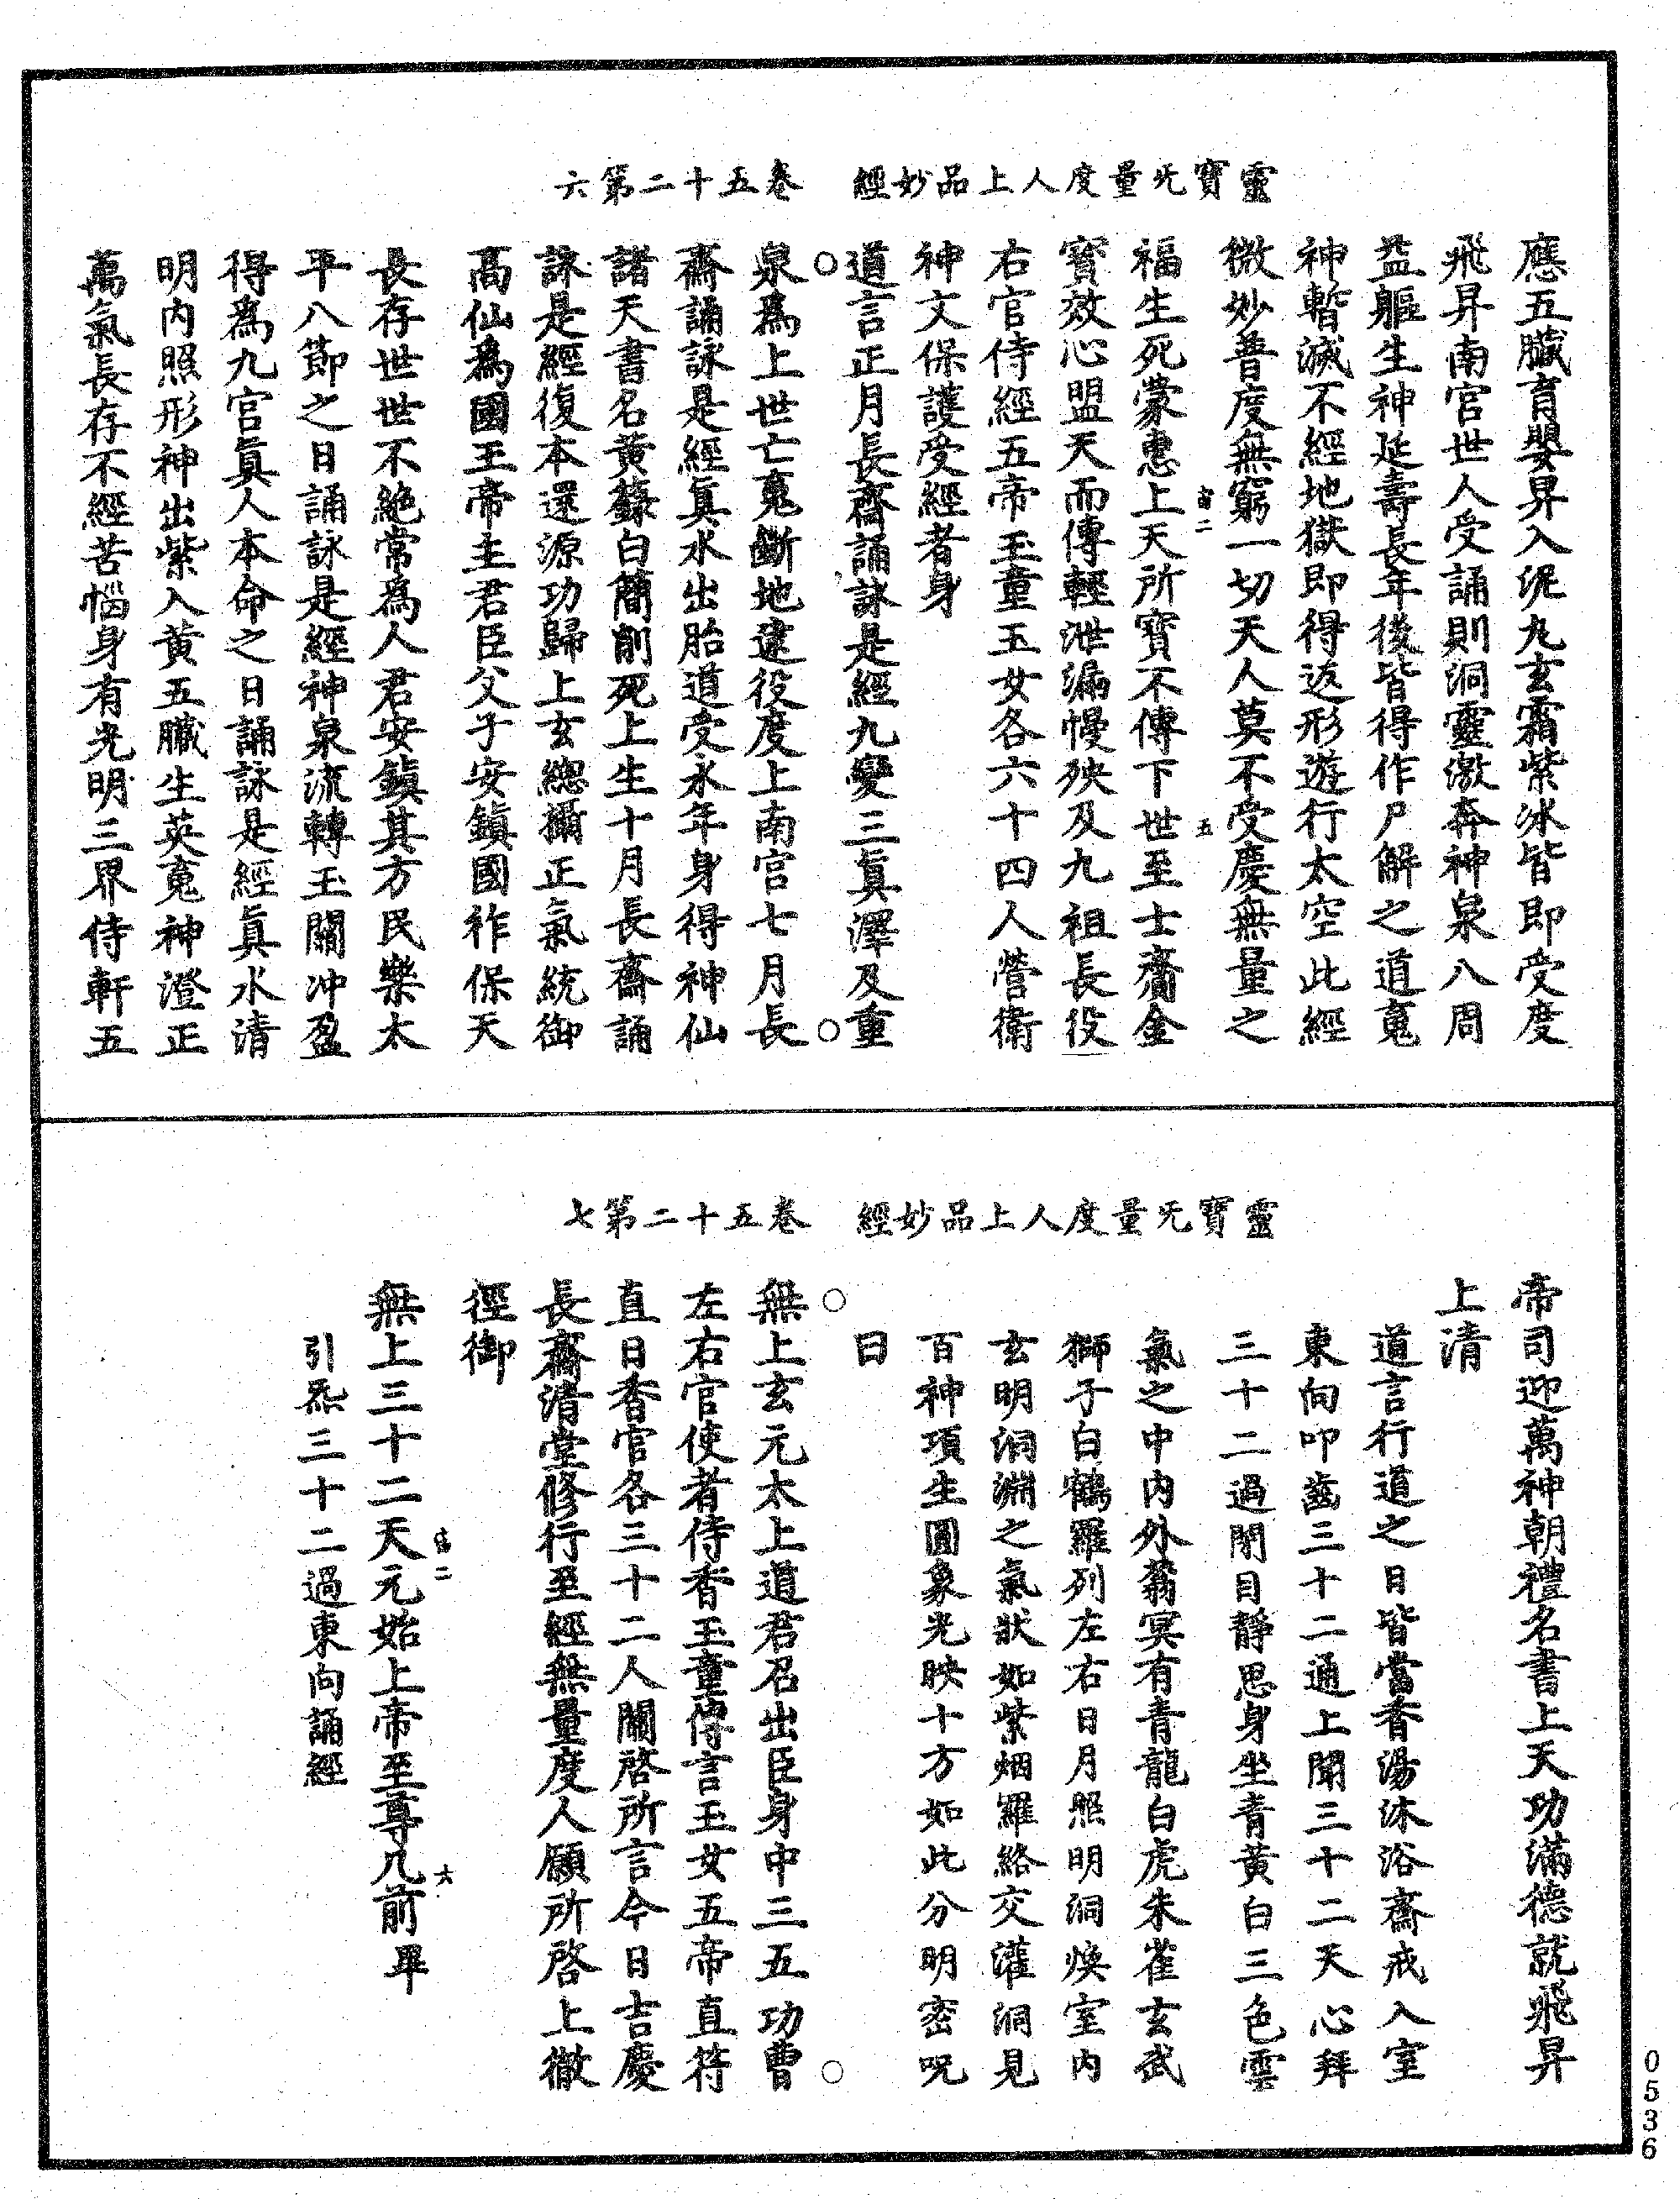 靈寶旡量度人上品妙經　卷五十二第六
應五臟育嬰昇入泥丸玄霜紫冰皆即受度
飛昇南宮世人受誦則洞靈激奔神泉八周
益軀生神延壽長年後皆得作尸解之道䰟
神暫滅不經地獄即得返形遊行太空此經
微妙普度無窮一切天人莫不受慶無量之
福生死蒙惠上天所寶不傳下世至士齎金
寶效心盟天而傳輕泄漏慢殃及九祖長役
右官侍經五帝玉童玉女各六十四人營衛
神文保護受經者身
道言正月長齋誦詠是經九變三真澤及重
泉為上世亡䰟斷地逮役度上南宮七月長
齋誦詠是經真水出胎道受水年身得神仙
諸天書名黃籙白簡削死上生十月長齋誦
詠是經復本還源功歸上玄總攝正氣統御
高仙為國王帝主君臣父子安鎮國祚保天
長存世世不絶常為人君安鎮其方民樂太
平八節之日誦詠是經神泉流轉玉關冲盈
得為九宮真人本命之日誦詠是經真水清
明内照形神出紫入黃五臟生英䰟神澄正
萬氣長存不經苦惱身有光明三界侍軒五
五
靈寶旡量度人上品妙經　卷五十二第七
帝司迎萬神朝禮名書上天功滿德就飛昇
上清
道言行道之日皆當香湯沐浴齋戒入室
東向叩齒三十二通上聞三十二天心拜
三十二過閉目靜思身坐青黃白三色雲
氣之中内外蓊冥有青龍白虎朱雀玄武
獅子白鶴羅列左右日月照明洞煥室内
玄明洞淵之氣狀如紫烟羅絡交灌洞見
百神項生圓象光映十方如此分明密呪
曰
無上玄元太上道君召出臣身中三五功曹
左右官使者侍香玉童傳言玉女五帝直符
直日香官各三十二人關啓所言今日吉慶
長齋清堂修行至經無量度人願所啓上徹
徑御
無上三十二天元始上帝至尊几前畢
引炁三十二過東向誦經
六
0536